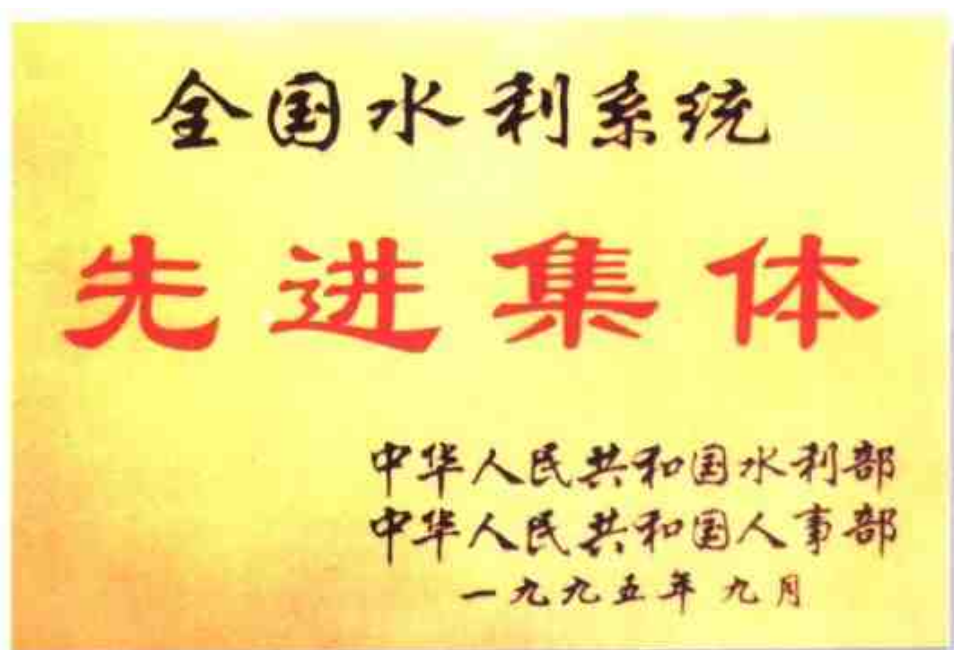 全国水利系统
先进集体
中华人民共和国水利部
中华人民共和国人事部
一九九五年九月